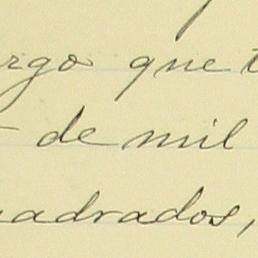 rgo que t
de mil
uadrados,